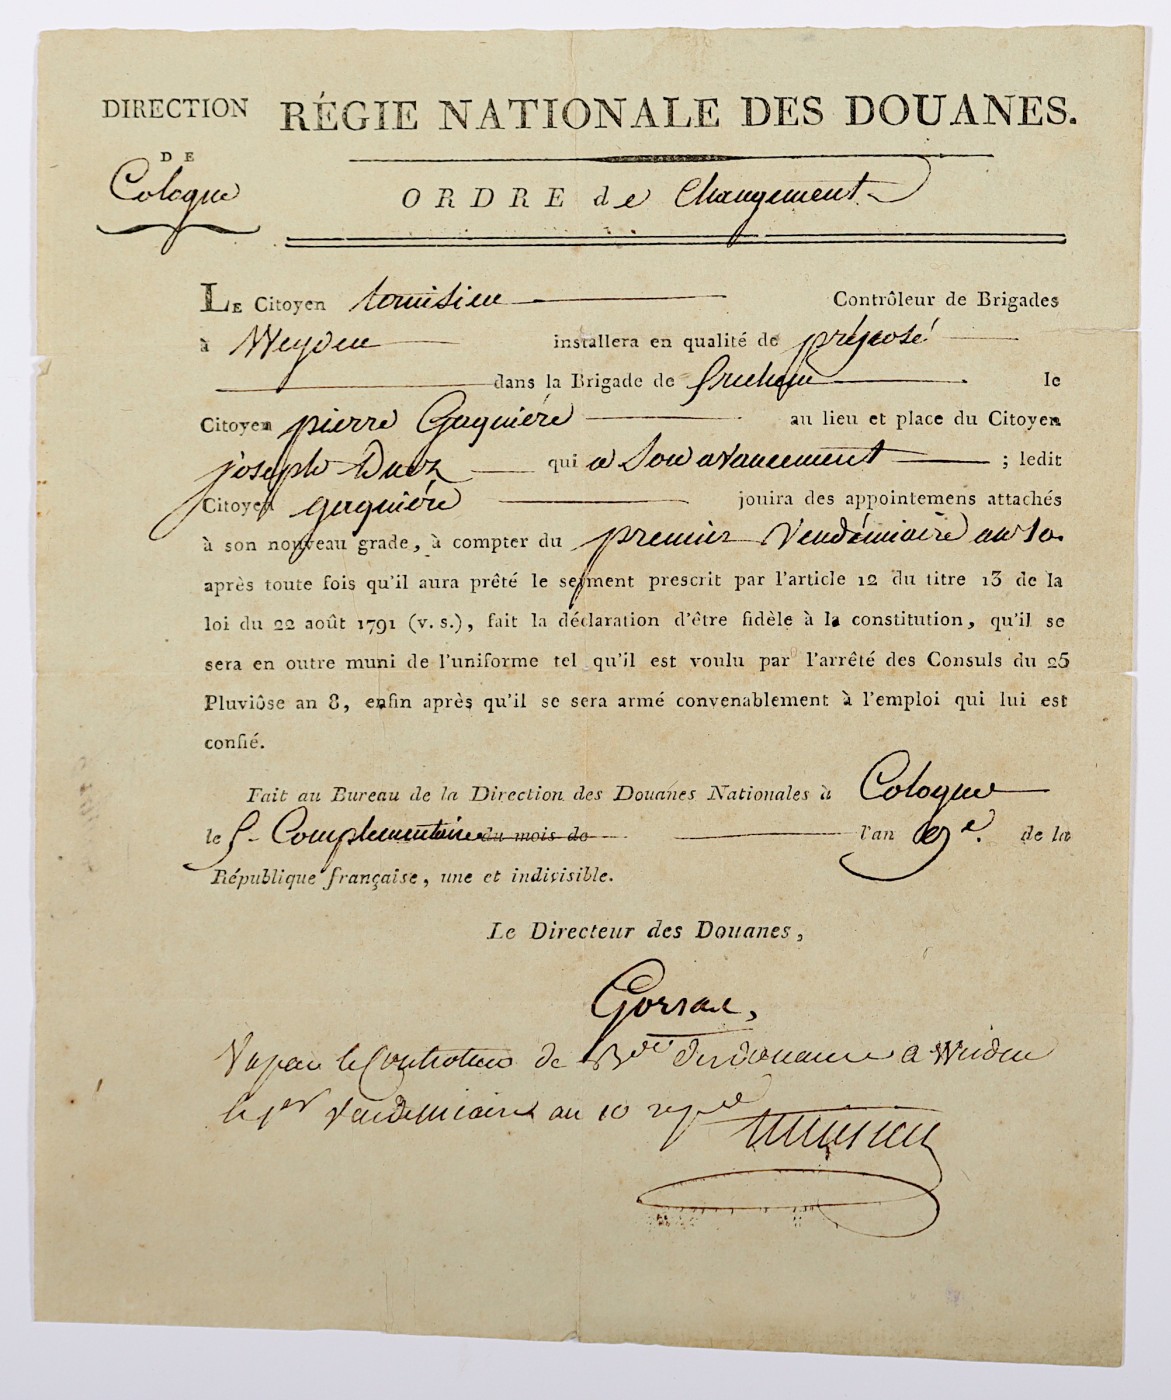 DIRECTION
DE
Cologne
RÉGIE NATIONALE DES DOUANES.
ORDRE de Changement
LE Citoyen tomisien Contrôleur de Brigades
à Weyden installera en qualité de préposé
dans la Brigade de le
Citoyen pierre Gagniére au lieu et place du Citoyen
joseph qui a Son avancement ; ledit
Citoyen gagniére jouira des appointemens attachés
à son nouveau grade, à compter du premier Vendémiaire an 10.
après toute fois qu'il aura prêté le serment prescrit par l'article 12 du titre 13 de la
loi du 22 août 1791 (v. s.), fait la déclaration d'être fidèle à la constitution, qu'il se
sera en outre muni de l'uniforme tel qu'il est voulu par l'arrêté des Consuls du 25
Pluviôse an 8, enfin après qu'il se sera armé convenablement à l'emploi qui lui est
confié.
Fait au Bureau de la Direction des Douanes Nationales à Cologne
le 5 Complementaire du mois de l'an 9e. de la
République française, une et indivisible.
Le Directeur des Douanes,
Vu par le Controleur de Bde des douane a Weiden
le 1er Vendemiaire an 10